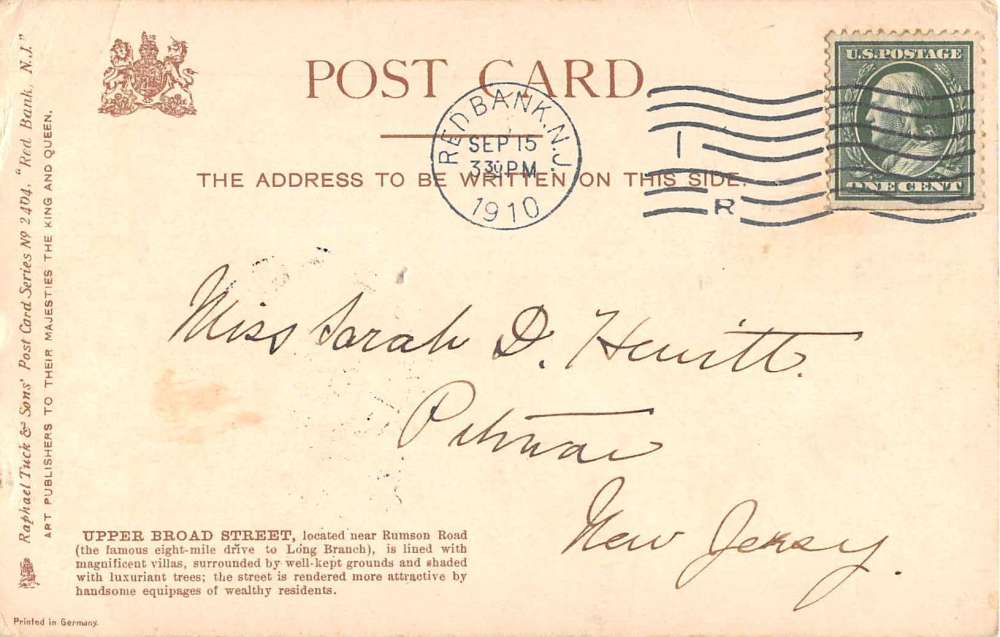 POST CARD.
THE ADDRESS TO BE WRITTEN ON THIS SIDE.
RED BANK, N.J.
SEP 15
3 30 PM
1910
1
R
U.S. POSTAGE
ONE CENT
Miss Sarah D. Hewitt.
Pitman
New Jersey.
Raphael Tuck & Sons' Post Card Series No 2404. "Red Bank, N.J."
ART PUBLISHERS TO THEIR MAJESTIES THE KING AND QUEEN.
UPPER BROAD STREET, located near Rumson Road
(the famous eight-mile drive to Long Branch), is lined with
magnificent villas, surrounded by well-kept grounds and shaded
with luxuriant trees; the street is rendered more attractive by
handsome equipages of wealthy residents.
Printed in Germany.